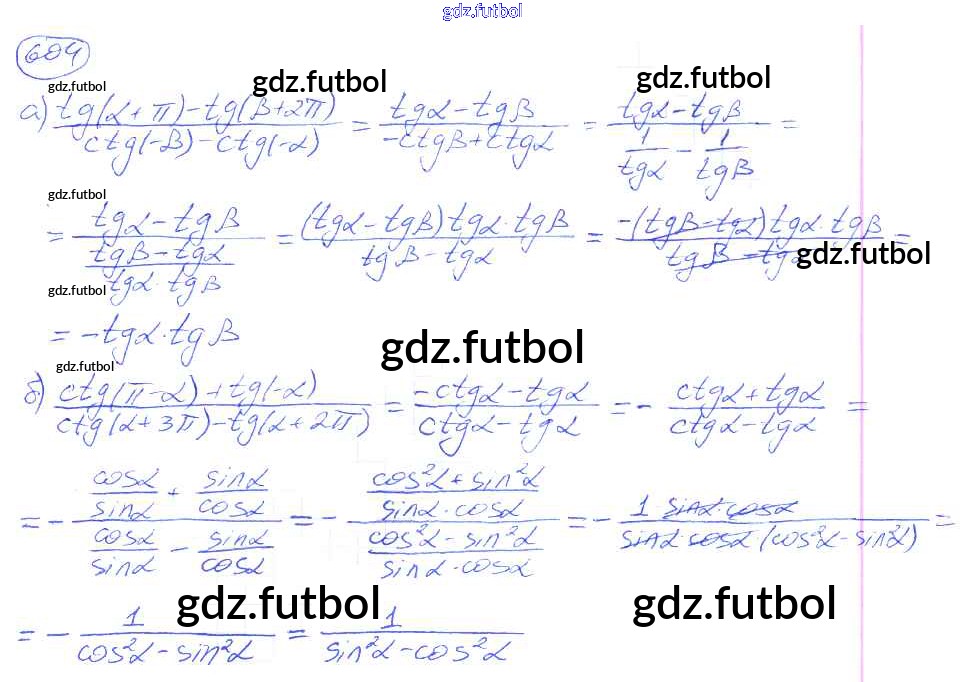 gdz.futbol
604
gdz.futbol gdz.futbol gdz.futbol
а) (tg(α + π) - tg(β + 2π)) / (ctg(-β) - ctg(-α)) = (tgα - tgβ) / (-ctgβ + ctgα) = (tgα - tgβ) / (1/tgα - 1/tgβ) =
gdz.futbol
= (tgα - tgβ) / ((tgβ - tgα) / (tgα · tgβ)) = ((tgα - tgβ) tgα · tgβ) / (tgβ - tgα) = (-(tgβ - tgα) tgα · tgβ) / (tgβ - tgα) =
gdz.futbol
gdz.futbol
= -tgα · tgβ
gdz.futbol
gdz.futbol
б) (ctg(π - α) + tg(-α)) / (ctg(α + 3π) - tg(α + 2π)) = (-ctgα - tgα) / (ctgα - tgα) = - (ctgα + tgα) / (ctgα - tgα) =
= - (cosα/sinα + sinα/cosα) / (cosα/sinα - sinα/cosα) = - ((cos²α + sin²α) / (sinα · cosα)) / ((cos²α - sin²α) / (sinα · cosα)) = - (1 sinα · cosα) / (sinα · cosα · (cos²α - sin²α)) =
gdz.futbol gdz.futbol
= - 1 / (cos²α - sin²α) = 1 / (sin²α - cos²α)